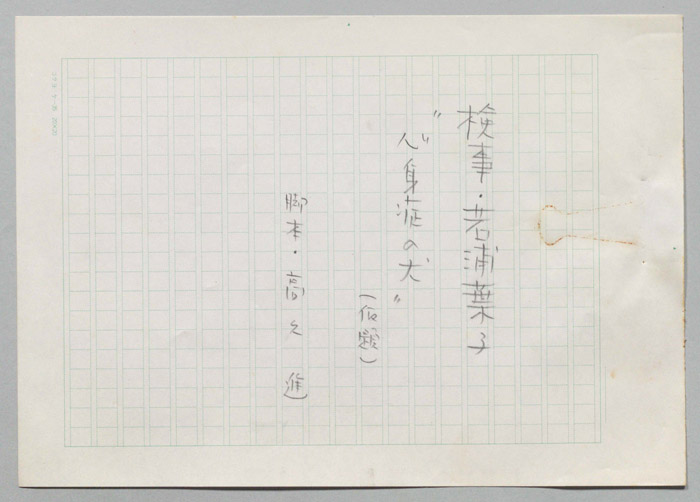 検事・若浦葉子
"心身症の犬"
(仮題)
脚本・高久進